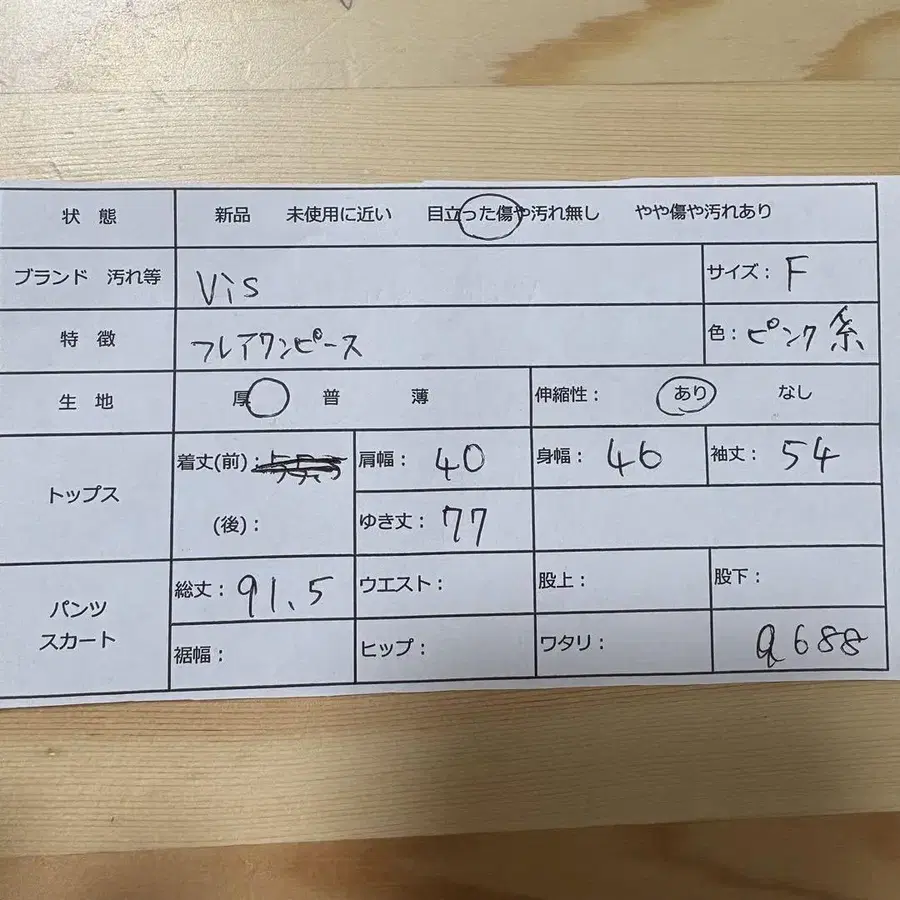 状 態 新品 未使用に近い 目立った傷や汚れ無し やや傷や汚れあり
ブランド 汚れ等 Vis サイズ: F
特 徴 フレアワンピース 色: ピンク系
生 地 厚 普 薄 伸縮性: あり なし
トップス 着丈(前): 肩幅: 40 身幅: 46 袖丈: 54
(後): ゆき丈: 77
パンツ スカート 総丈: 91.5 ウエスト: 股上: 股下:
裾幅: ヒップ: ワタリ: a688